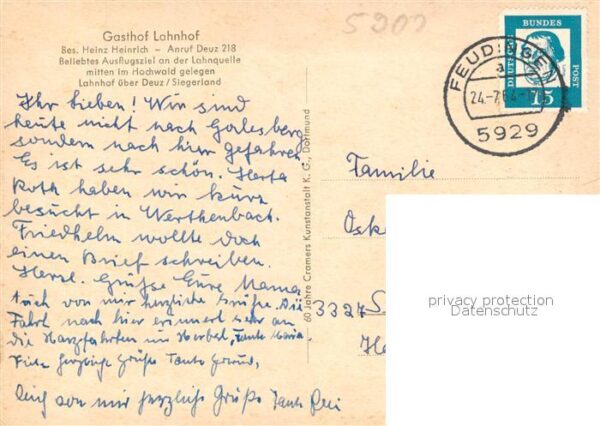 5900
Gasthof Lahnhof
Bes. Heinz Heinrich – Anruf Deuz 218
Beliebtes Ausflugsziel an der Lahnquelle
mitten im Hochwald gelegen
Lahnhof über Deuz / Siegerland
Ihr Lieben! Wir sind
heute nicht nach Godesberg
sondern nach hier gefahren.
Es ist sehr schön. Herta
Roth haben wir kurz
besucht in Werthenbach.
Friedhelm wollte doch
einen Brief schreiben.
Herzl. Grüße Eure Mama
Auch von mir herzliche Grüße. Die
Fahrt nach hier erinnert sehr an
die Harzfahrten mit Herbert, Tante Maria.
Viele herzliche Grüße Tante
Auch von mir herzliche Grüße Tante
60 Jahre Cramers Kunstanstalt K. G., Dortmund
DEUTSCHE BUNDES POST
15
FEUDINGEN
a
24.-7.64
5929
Familie
Osk
3327 S
privacy protection
Datenschutz